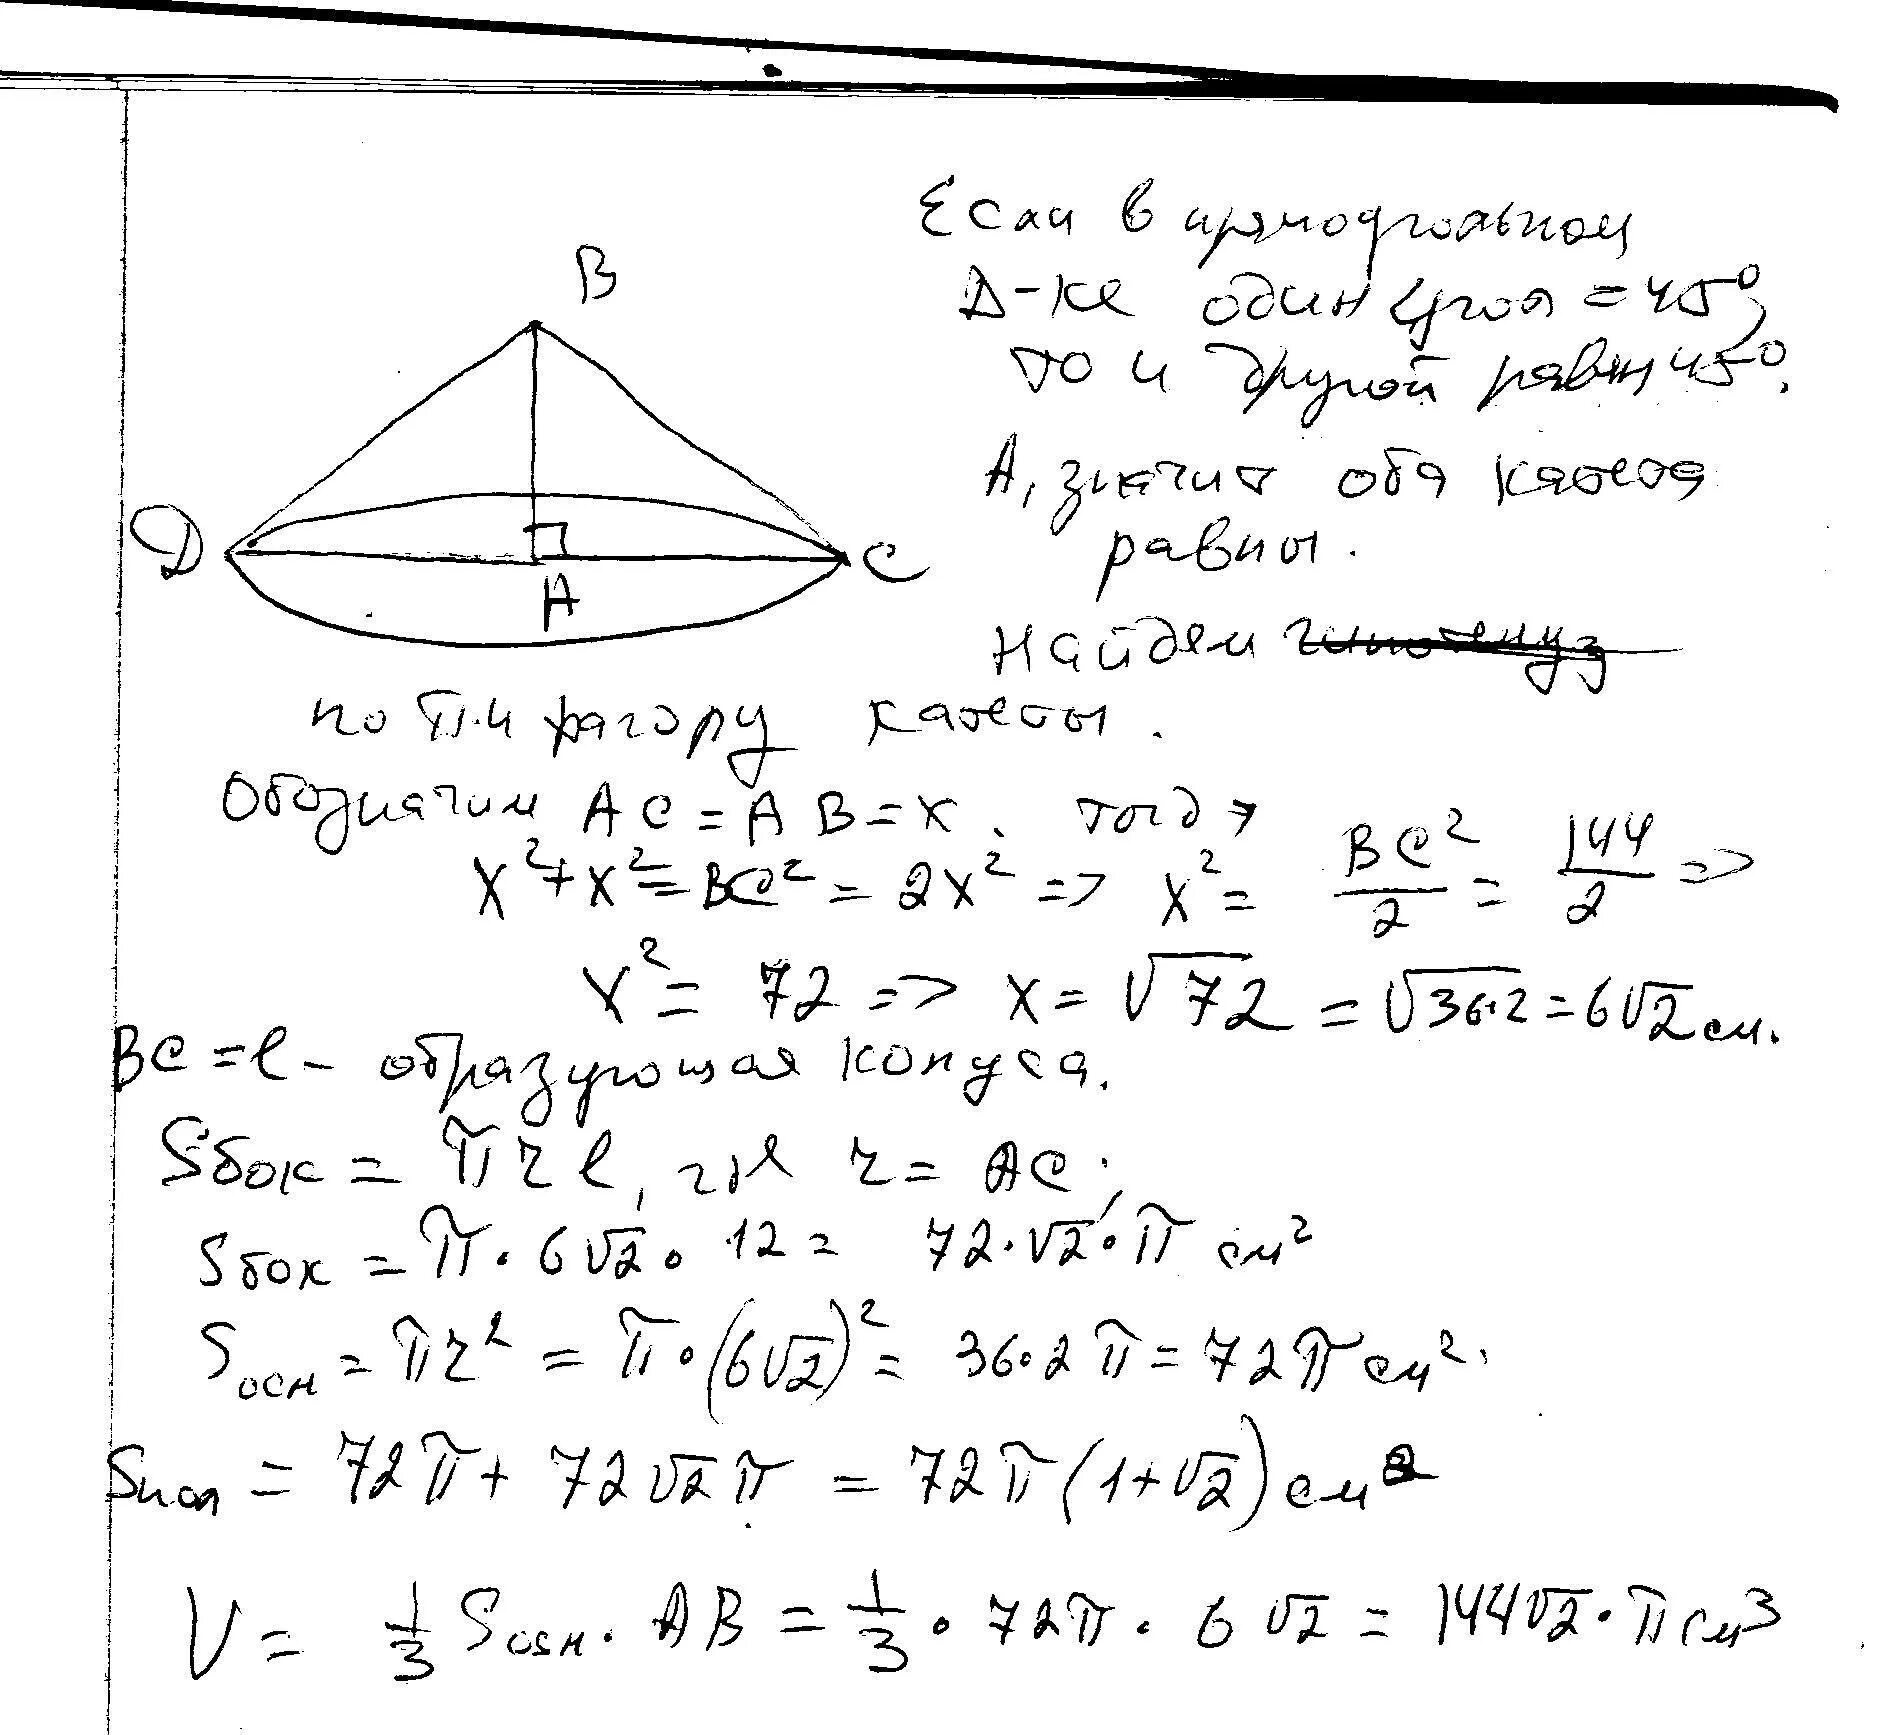 B
D
A
C
Если в прямоугольном
Δ-ке один угол = 45°,
то и другой равен 45°.
А, значит оба катета
равны.
Найдём гипотенуз
по Пифагору катеты.
Обозначим AC = AB = x. тогда
x² + x² = BC² = 2x² => x² = BC²/2 = 144/2 =>
x² = 72 => x = √72 = √36·2 = 6√2 см.
BC = l – образующая конуса.
Sбок = π r l, где r = AC.
Sбок = π · 6√2 · 12 = 72·√2·π см²
Sосн = πr² = π·(6√2)² = 36·2π = 72π см².
Sпол = 72π + 72√2π = 72π(1+√2) см²
V = 1/3 Sосн · AB = 1/3 · 72π · 6√2 = 144√2·π см³